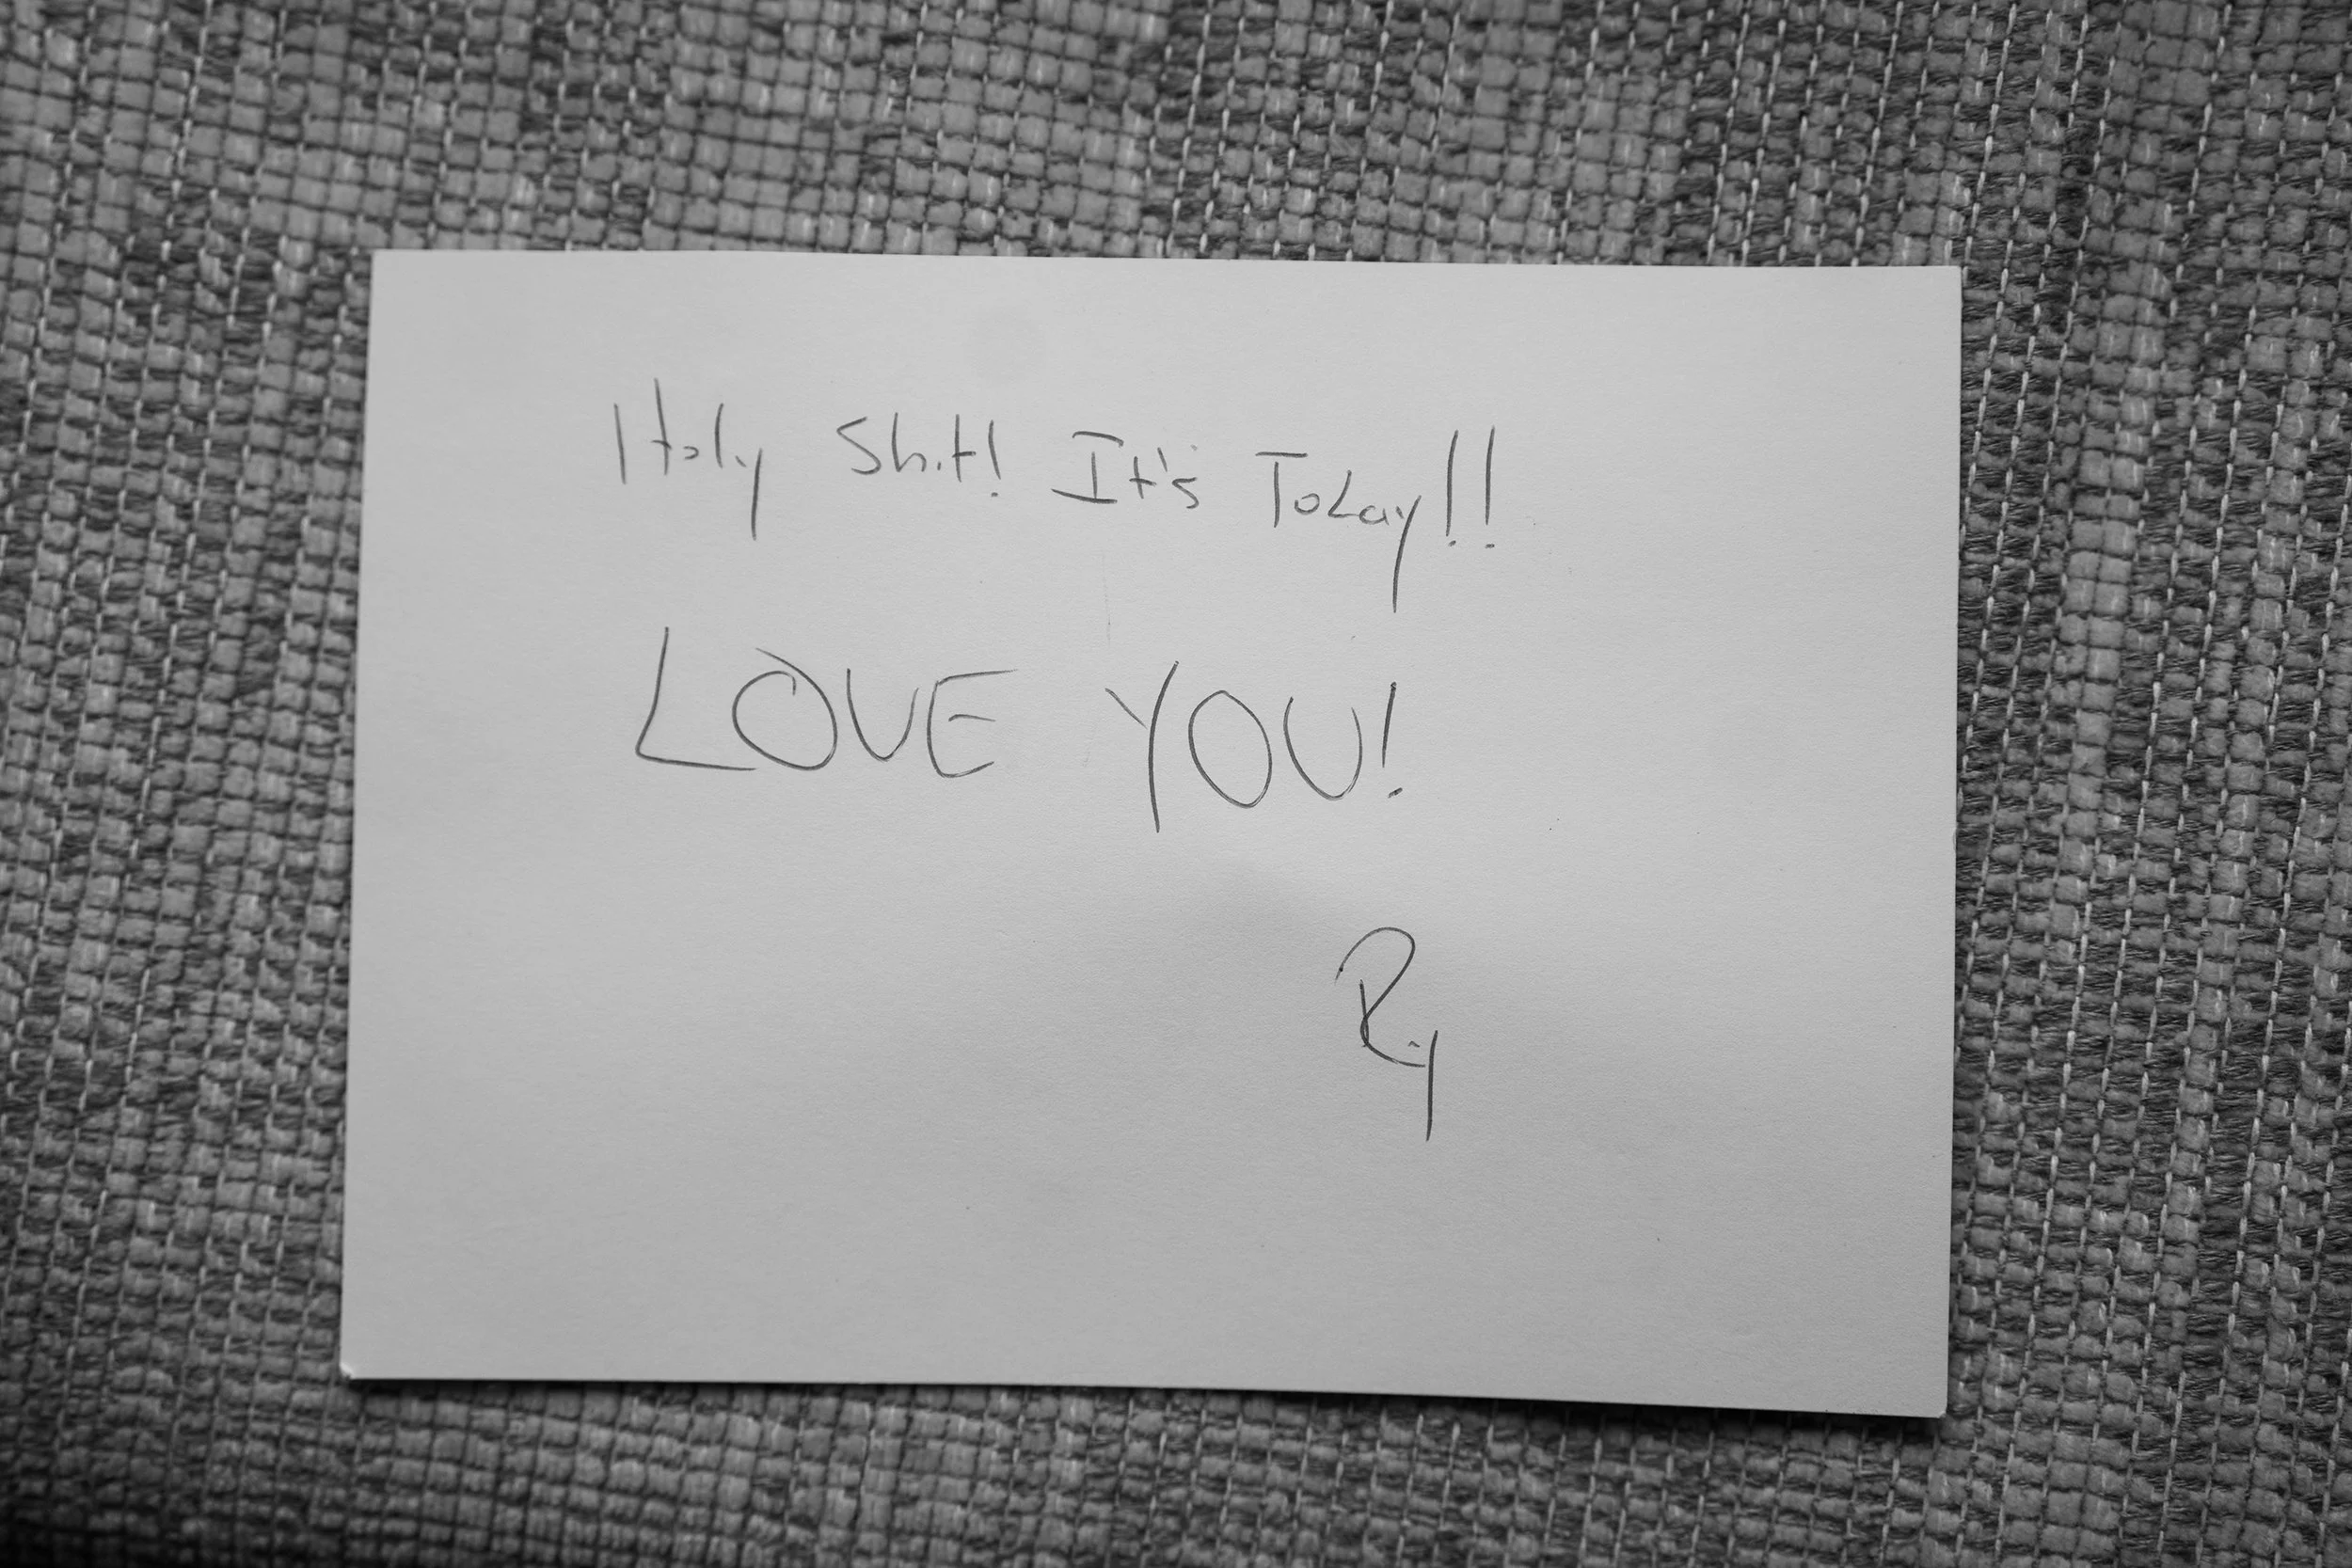 Holy Shit! It's Today!!
LOVE YOU!
Ry